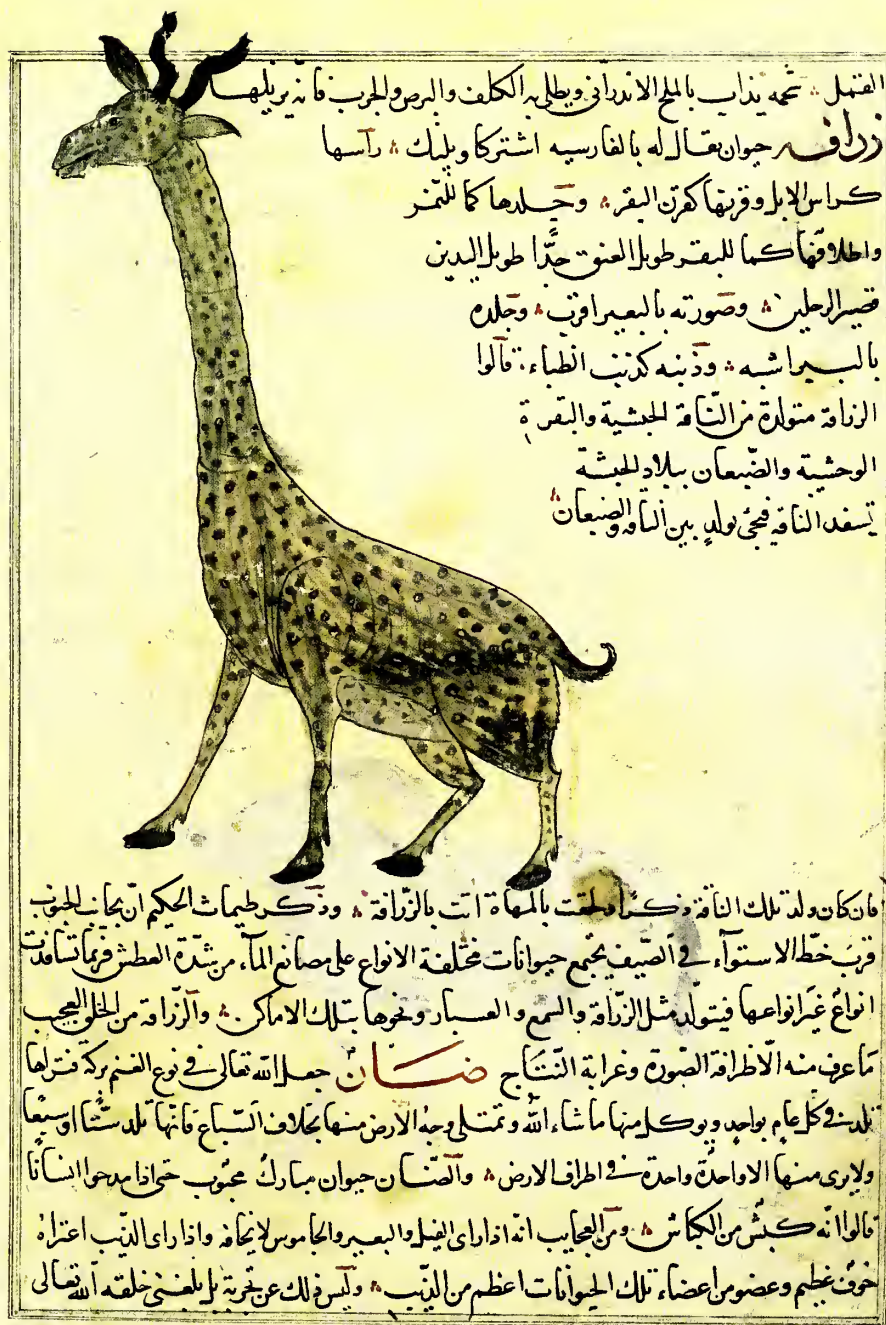 القتمل ؞ شحمه يذاب بالملح الاندرانى ويطلى به الكلف والبرص والجرب فانه يزيلها
زرافه حيوان يقال له بالفارسيه اشتركاو پلنك ؞ رأسها
كراس الابل وقرنها كقرن البقر ؞ وجلدها كما للنمر
واظلافها كما للبقر طويل العنق جدّا طويل اليدين
قصير الرجلين ؞ وصورته بالبعير اقرب ؞ وجلده
بالببر اشبه ؞ وذنبه كذنب الظباء ؞ قالوا
الزرافة متولدة من الناقة الحبشية والبقرة
الوحشية والضبعان ببلاد الحبشة
يسفد الناقه فيجئ بولدٍ بين الناقه والضبعان ؞
فان كان ولد تلك الناقة ذكرًا ولحقت بالمهاة اتت بالزرافة ؞ وذكر طيماث الحكيم ان بجانب الجنوب
قرب خط الاستوآء فى الصيف يجتمع حيوانات مختلفة الانواع على مصانع المآء من شدّة العطش فربما تسافدت
انواع غير انواعها فيتولد مثل الزرافة والسمع والعسبار ونحوها بتلك الاماكن ؞ والزرافة من الخلق العجيب
ما عرف منه الا ظرافة الصورة وغرابة النتاج ضــان جعل الله تعالى فى نوع الغنم بركة فتراها
تلد فى كل عام بواحد ويوكل منها ما شاء الله وتمتلى وجه الارض منها بخلاف السباع فانها تلد ستّا او سبعًا
ولايرى منها الا واحدة واحدة فى اطراف الارض ؞ والضان حيوان مبارك محبوب حتى اذا مدحوا انسانًا
قالوا انه كبش من الكباش ؞ ومن العجايب انه اذا راى الفيل والبعير والجاموس لا يخافه واذا راى الذيب اعتراه
خوف عظيم وعضو من اعضاء تلك الحيوانات اعظم من الذيب ؞ وليس ذلك عن تجربة بل بمعنى خلقه الله تعالى